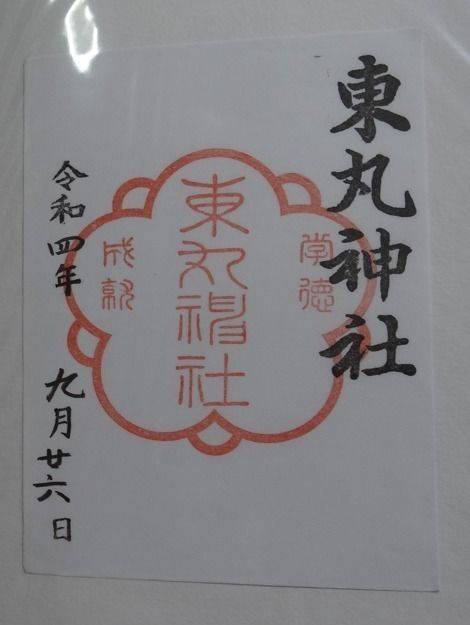 東丸神社
学徳
東丸神社
成就
令和四年
九月廿六日